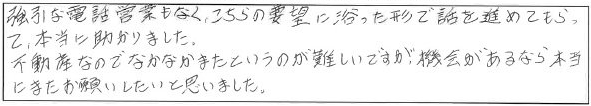 強引な電話営業もなく、こちらの要望に沿った形で話を進めてもらっ
て、本当に助かりました。
不動産なのでなかなかまたというのが難しいですが、機会があるなら本当
にまたお願いしたいと思いました。